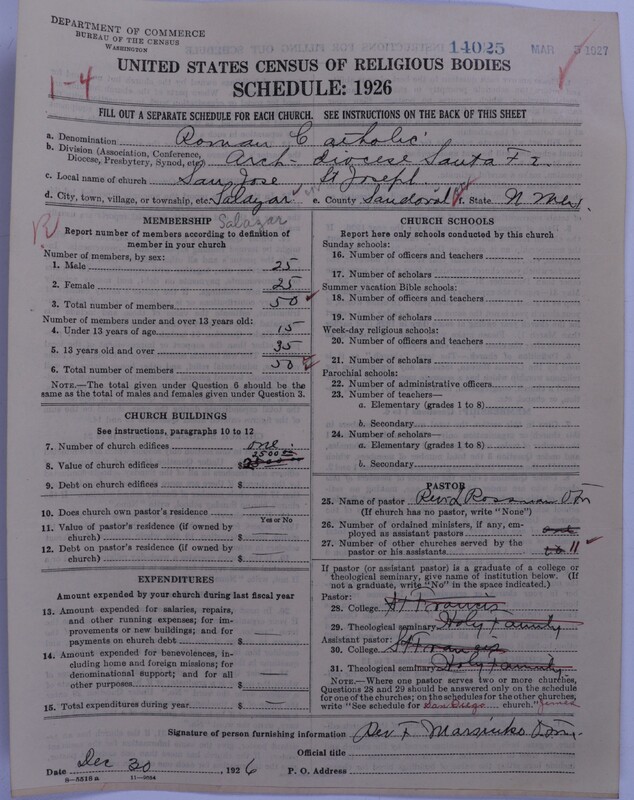 DEPARTMENT OF COMMERCE
BUREAU OF THE CENSUS
WASHINGTON
14025 MAR 3 1927
UNITED STATES CENSUS OF RELIGIOUS BODIES
1-4
SCHEDULE: 1926
FILL OUT A SEPARATE SCHEDULE FOR EACH CHURCH. SEE INSTRUCTIONS ON THE BACK OF THIS SHEET
a. Denomination Roman Catholic
b. Division (Association, Conference, Diocese, Presbytery, Synod, etc.) Arch-diocese Santa Fe
c. Local name of church San Jose St Joseph
d. City, town, village, or township, etc. Salazar e. County Sandoval f. State N. Mex.
MEMBERSHIP Salazar
Report number of members according to definition of
member in your church
Number of members, by sex:
1. Male 25
2. Female 25
3. Total number of members 50
Number of members under and over 13 years old:
4. Under 13 years of age 15
5. 13 years old and over 35
6. Total number of members 50
NOTE.—The total given under Question 6 should be
same as the total of males and females given under Question 3.
CHURCH BUILDINGS
See instructions, paragraphs 10 to 12
7. Number of church edifices one
8. Value of church edifices $ 2500
9. Debt on church edifices $
10. Does church own pastor's residence
Yes or No
11. Value of pastor's residence (if owned by
church) $
12. Debt on pastor's residence (if owned by
church) $
EXPENDITURES
Amount expended by your church during last fiscal year
13. Amount expended for salaries, repairs,
and other running expenses; for im-
provements or new buildings; and for
payments on church debt $
14. Amount expended for benevolences, in-
cluding home and foreign missions; for
denominational support; and for all
other purposes $
15. Total expenditures during year $
CHURCH SCHOOLS
Report here only schools conducted by this church
Sunday schools:
16. Number of officers and teachers
17. Number of scholars
Summer vacation Bible schools:
18. Number of officers and teachers
19. Number of scholars
Week-day religious schools:
20. Number of officers and teachers
21. Number of scholars
Parochial schools:
22. Number of administrative officers
23. Number of teachers—
a. Elementary (grades 1 to 8)
b. Secondary
24. Number of scholars—
a. Elementary (grades 1 to 8)
b. Secondary
PASTOR
25. Name of pastor
(If church has no pastor, write "None")
26. Number of ordained ministers, if any, em-
ployed as assistant pastors
27. Number of other churches served by the
pastor or his assistants 11
If pastor (or assistant pastor) is a graduate of a college or
theological seminary, give name of institution below. (If
not a graduate, write "No" in the space indicated.)
Pastor:
28. College St Francis
29. Theological seminary Holy Family
Assistant pastor:
30. College St Francis
31. Theological seminary Holy Family
NOTE.—Where one pastor serves two or more churches,
Questions 28 and 29 should be answered only on the schedule
for one of the churches; on the schedules for the other churches,
write "See schedule for San Diego church." Jemes
Signature of person furnishing information Rev F.
Official title
Date Dec 30, 1926 P. O. Address
8-5516a 11-9034